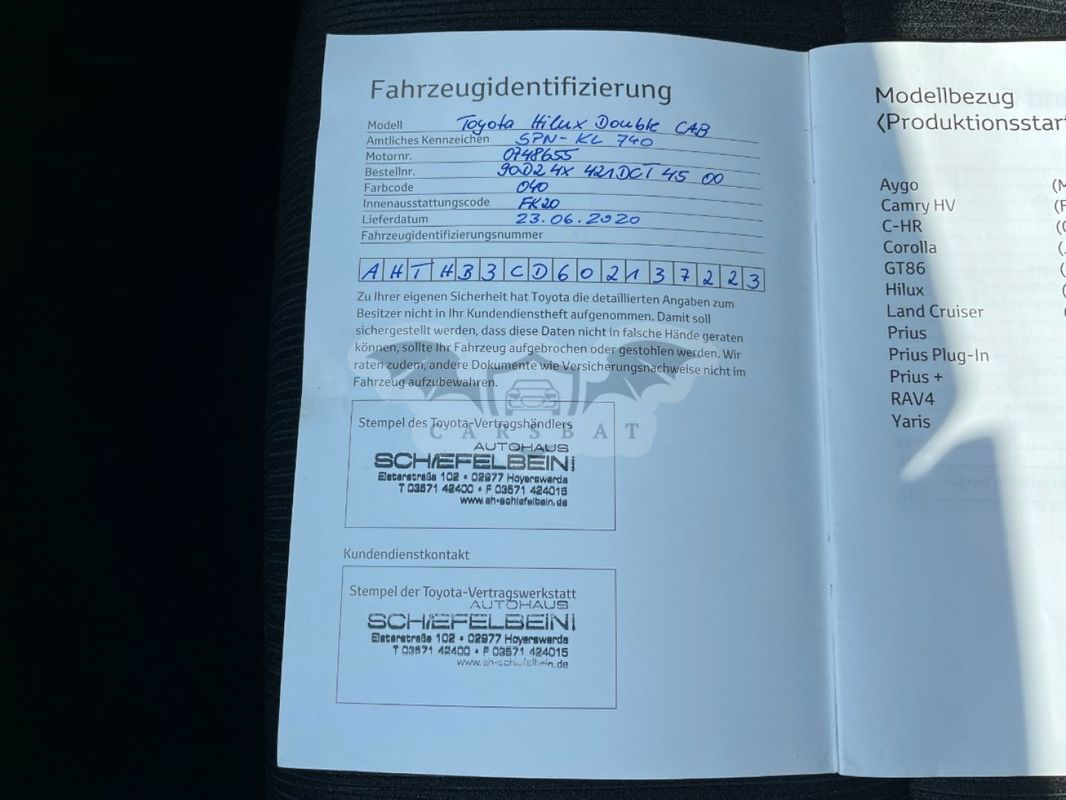 Fahrzeugidentifizierung
Modell Toyota Hilux Double CAB
Amtliches Kennzeichen SPN-KL 740
Motornr. 0748655
Bestellnr. 90D2 4X 421DCT 45 00
Farbcode 040
Innenausstattungscode FK20
Lieferdatum 23.06.2020
Fahrzeugidentifizierungsnummer
AHTHB3CD602137223
Zu Ihrer eigenen Sicherheit hat Toyota die detaillierten Angaben zum
Besitzer nicht in Ihr Kundendienstheft aufgenommen. Damit soll
sichergestellt werden, dass diese Daten nicht in falsche Hände geraten
können, sollte Ihr Fahrzeug aufgebrochen oder gestohlen werden. Wir
raten zudem, andere Dokumente wie Versicherungsnachweise nicht im
Fahrzeug aufzubewahren.
CARSBAT
Stempel des Toyota-Vertragshändlers
AUTOHAUS
SCHIEFELBEIN
Elsterstraße 102 • 02977 Hoyerswerda
T 03571 42400 • F 03571 424015
www.ah-schiefelbein.de
Kundendienstkontakt
Stempel der Toyota-Vertragswerkstatt
AUTOHAUS
SCHIEFELBEIN
Elsterstraße 102 • 02977 Hoyerswerda
T 03571 42400 • F 03571 424015
www.ah-schiefelbein.de
Modellbezug
(Produktionsstart
Aygo
Camry HV
C-HR
Corolla
GT86
Hilux
Land Cruiser
Prius
Prius Plug-In
Prius +
RAV4
Yaris